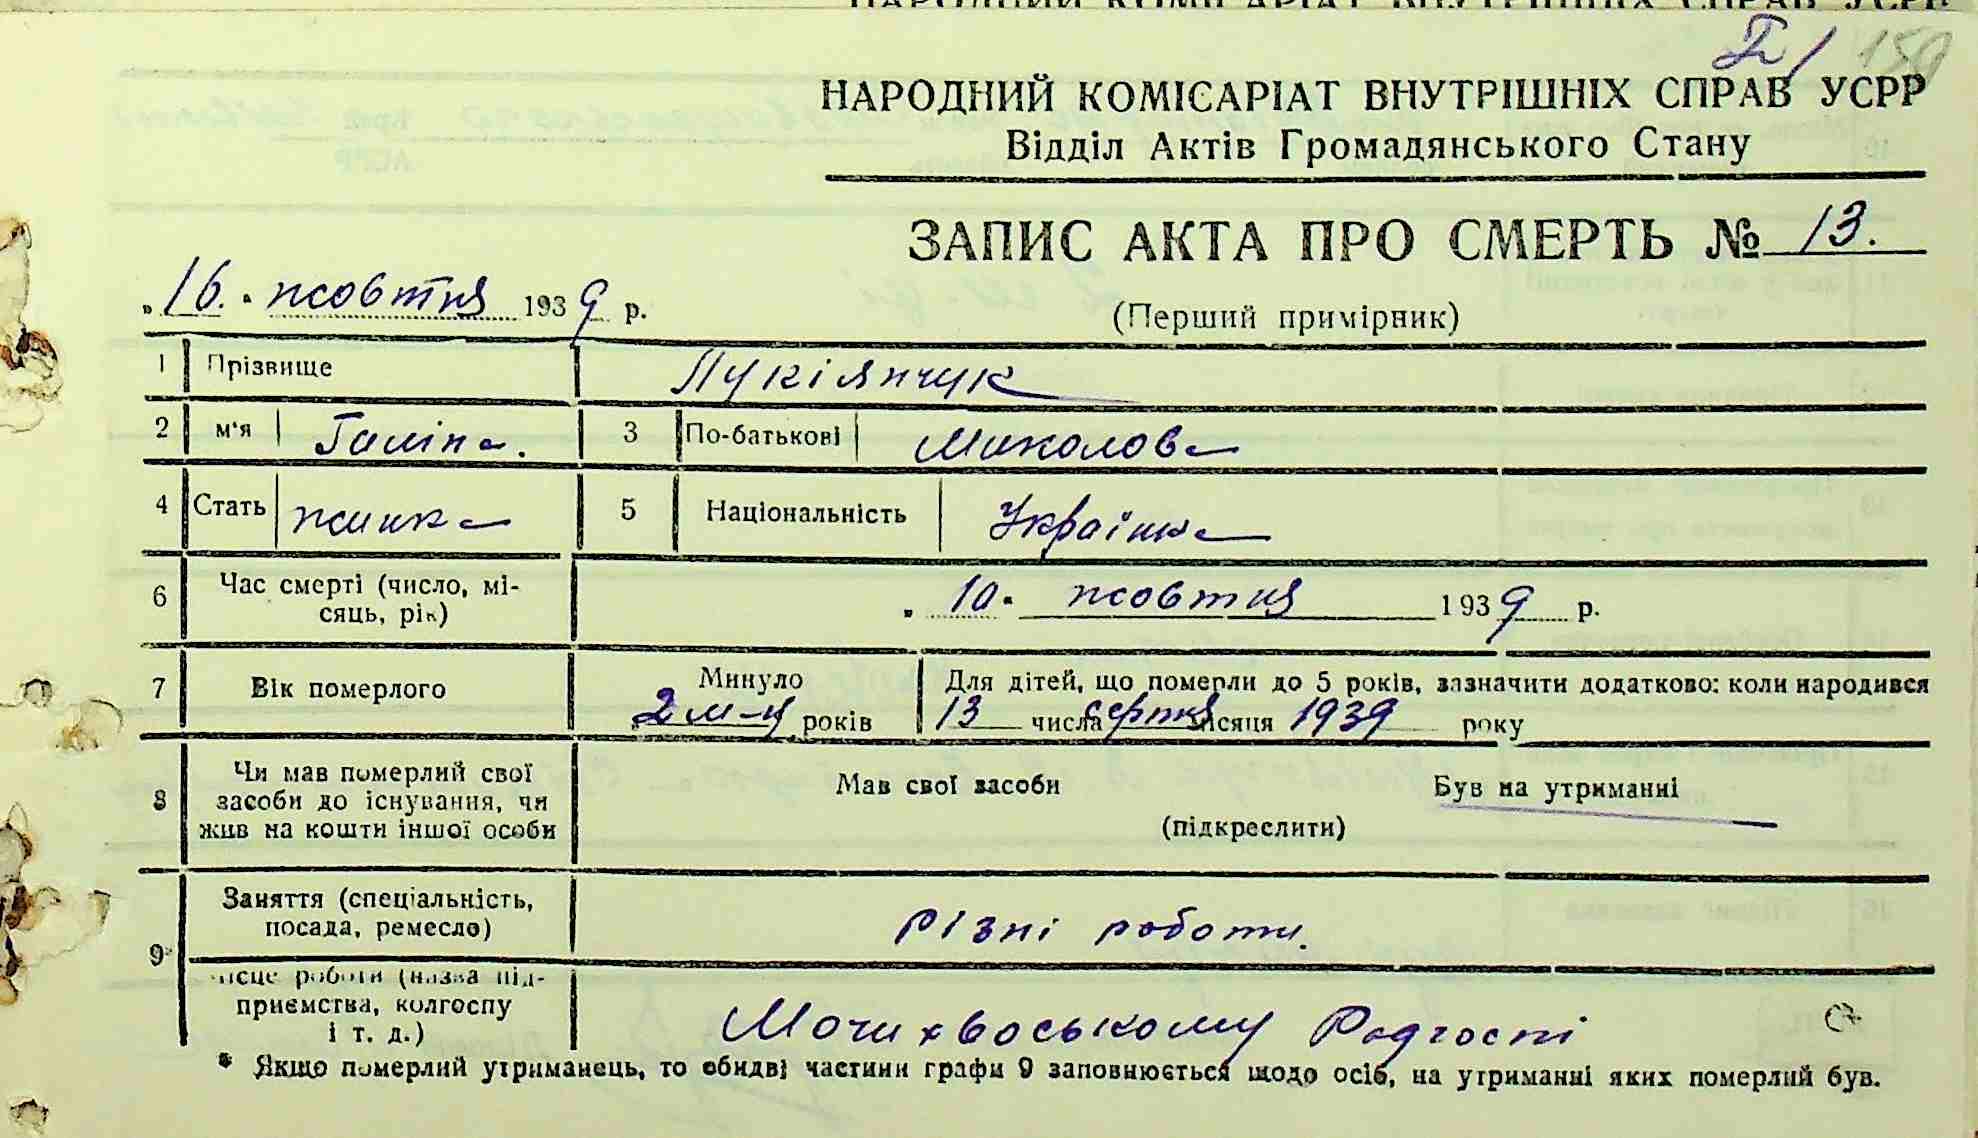 НАРОДНИЙ КОМІСАРІАТ ВНУТРІШНІХ СПРАВ УСРР
150
НАРОДНИЙ КОМІСАРІАТ ВНУТРІШНІХ СПРАВ УСРР
Відділ Актів Громадянського Стану
ЗАПИС АКТА ПРО СМЕРТЬ № 13.
„16." жовтня 1939 р.
(Перший примірник)
1 Прізвище Лукіянчук
2 м'я Галіна. 3 По-батькові Миколова
4 Стать жинка 5 Національність Українка
6 Час смерті (число, мі-
сяць, рік) „10" жовтня 1939 р.
7 Вік померлого Минуло 2 м-ц років Для дітей, що померли до 5 років, зазначити додатково: коли народився
13 числа серпня місяця 1939 року
8 Чи мав померлий свої
засоби до існування, чи
жив на кошти іншої особи
Мав свої засоби Був на утриманні
(підкреслити)
9 Заняття (спеціальність,
посада, ремесло) різні роботи.
місце роботи (назва під-
приємства, колгоспу
і т. д.) Мочихвоському Радгоспі
* Якщо померлий утриманець, то обидві частини графи 9 заповнюється щодо осіб, на утриманні яких померлий був.